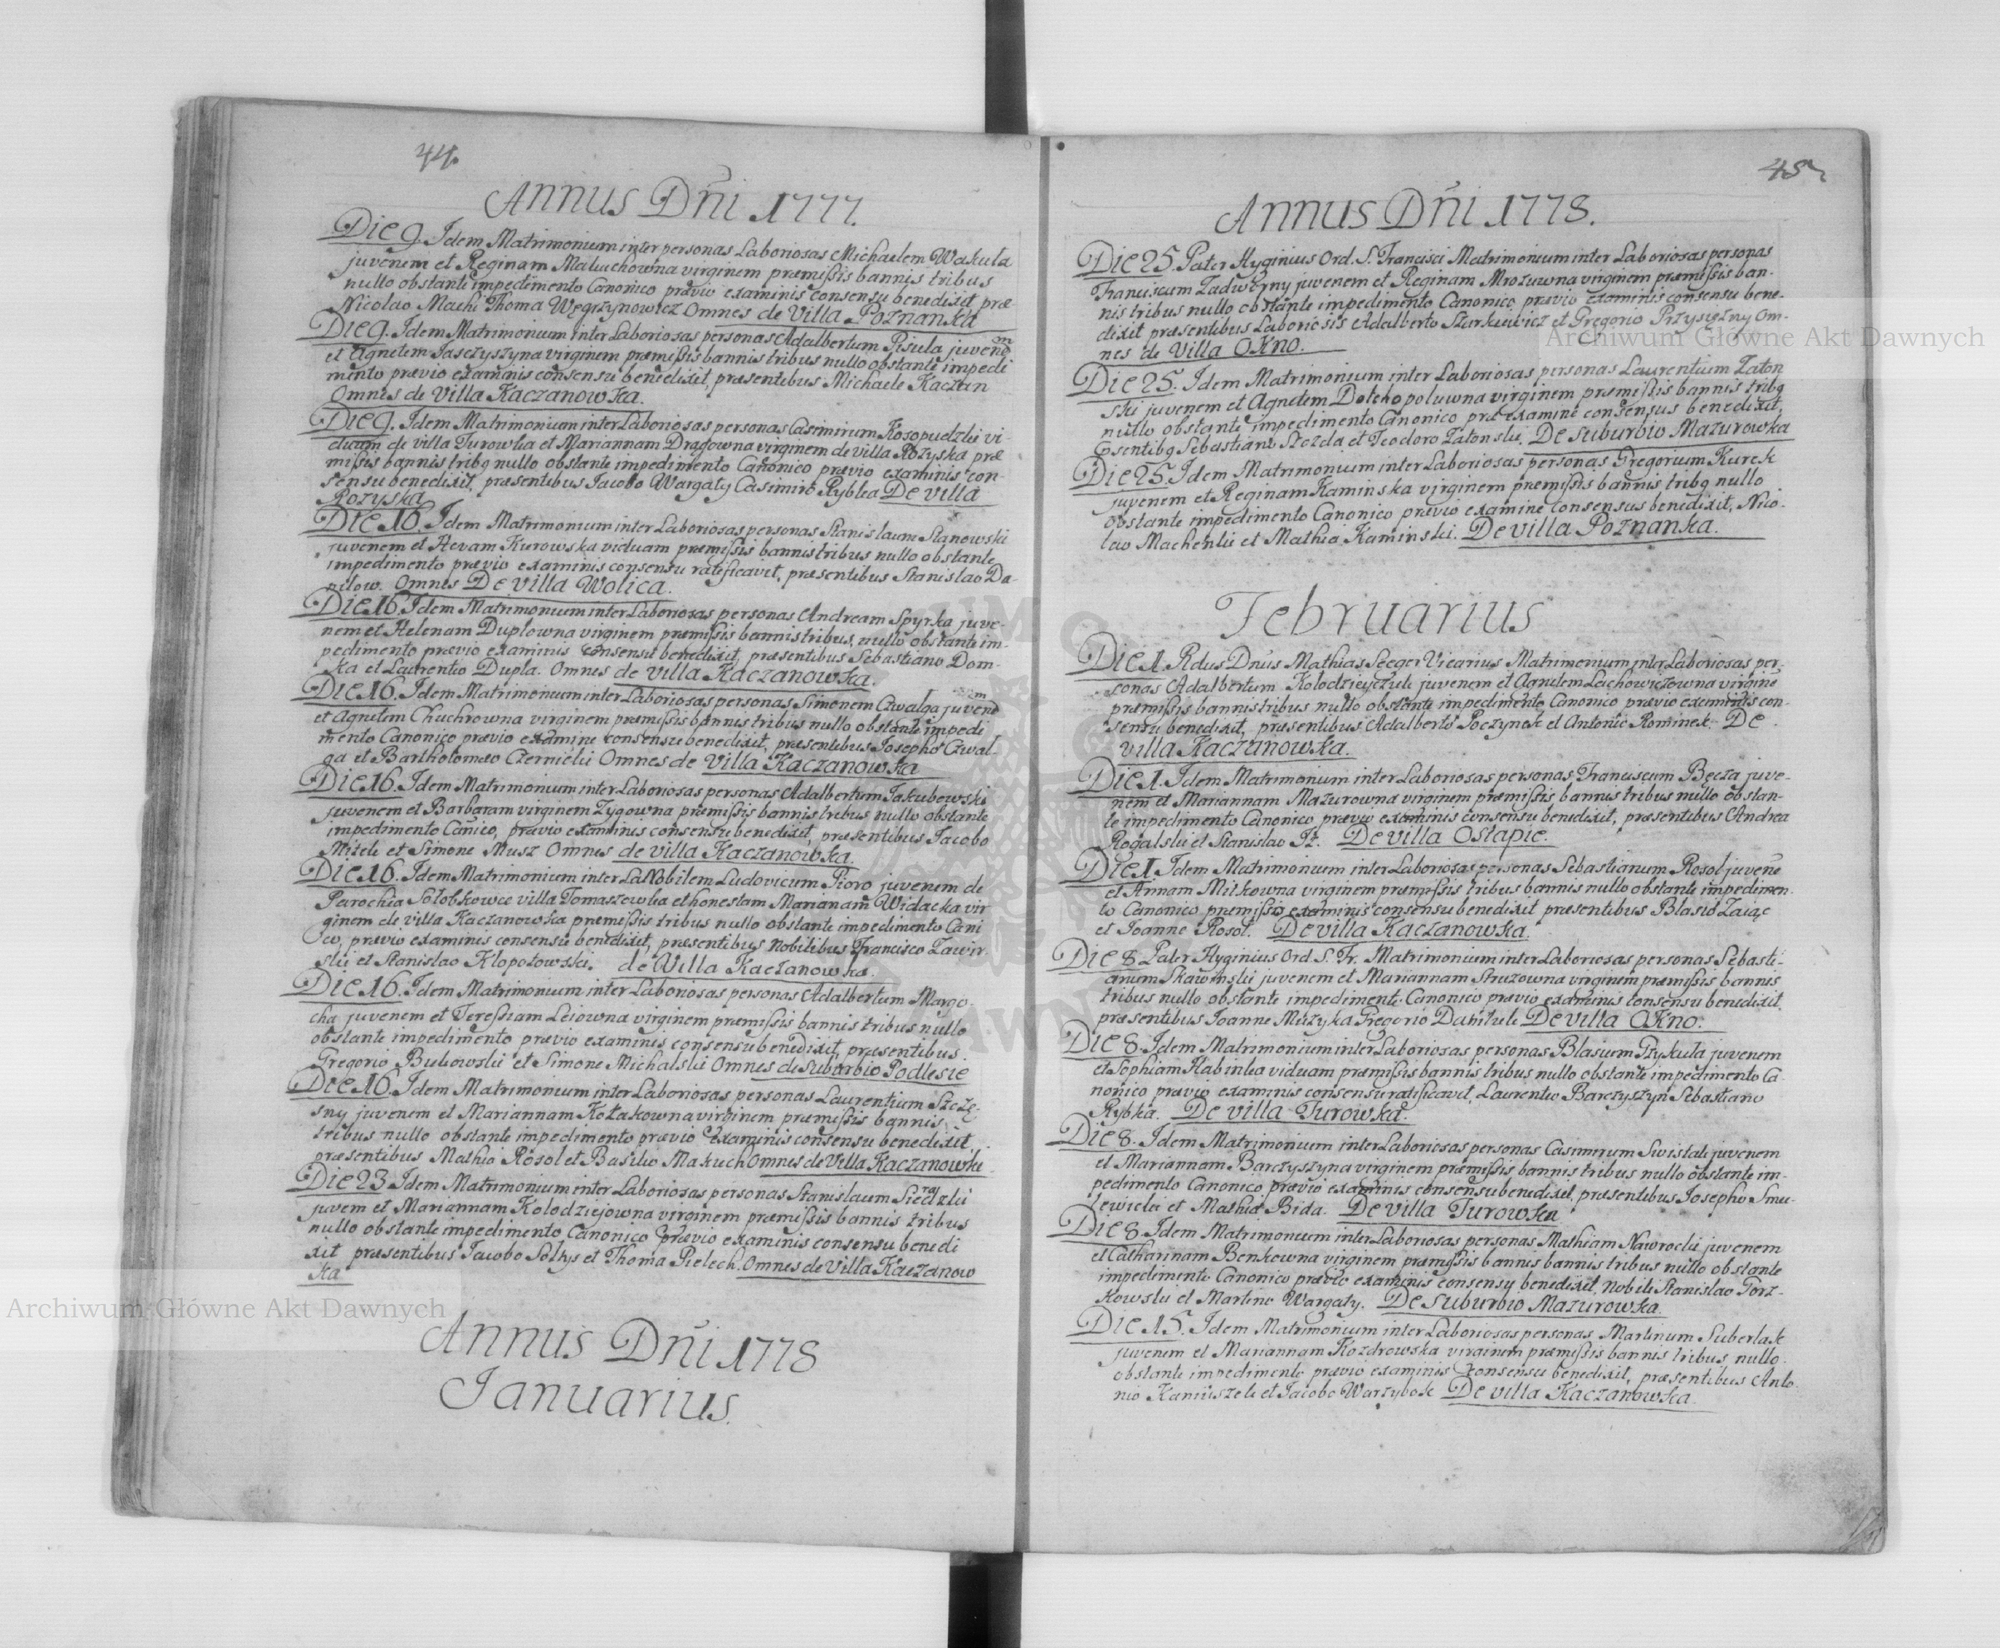 44.
Annus Dñi 1777.
Die 9. Idem Matrimonium inter personas Laboriosas Michaelem Wakuła
juvenem et Reginam Maluchowna virginem præmissis bannis tribus
nullo obstante impedimento Canonico prævio examinis consensu benedixit præ
Nicolao Machi Thoma Węgrzynowicz Omnes de Villa Poznanka
Die 9. Idem Matrimonium inter Laboriosas personas Adalbertum Pisula juvenem
et Agnetem Jasczyszyna virginem præmissis bannis tribus nullo obstante impedi
mento prævio examinis consensu benedixit, præsentibus Michaele Kaczan
Omnes de Villa Kaczanowka.
Die 9. Idem Matrimonium inter Laboriosas personas Casimirum Kosopudzki vi-
duum de villa Turowka et Mariannam Drągowna virginem de villa Rozyska præ
missis bannis tribq nullo obstante impedimento Canonico prævio examinis con-
sensu benedixit, præsentibus Jacobo Wargaty Casimiro Rybka De villa
Rozyska
Die 16. Idem Matrimonium inter Laboriosas personas Stanislaum Stanowski
juvenem et Hevam Kurowska viduam præmissis bannis tribus nullo obstante
impedimento prævio examinis consensu ratificavit, præsentibus Stanislao Da-
nilow. Omnes De villa Wolica.
Die 16. Idem Matrimonium inter Laboriosas personas Andream Spyrka juve-
nem et Helenam Duplowna virginem præmissis bannis tribus, nullo obstante im-
pedimento prævio examinis consensu benedixit, præsentibus Sebastiano Dom-
ka et Laurentio Dupla. Omnes de villa Kaczanowka.
Die 16. Idem Matrimonium inter Laboriosas personas Simonem Cwalga juvenem
et Agnetem Chuchrowna virginem præmissis bannis tribus nullo obstante impedi
mento Canonico prævio examine consensu benedixit, præsentibus Josepho Cwal-
ga et Bartholomæo Czernicki Omnes de Villa Kaczanowka
Die 16. Idem Matrimonium inter Laboriosas personas Adalbertum Jakubowski
juvenem et Barbaram virginem Zygowna præmissis bannis tribus nullo obstante
impedimento Canico, prævio examinis consensu benedixit, præsentibus Jacobo
Misek et Simone Musz Omnes de villa Kaczanowka.
Die 16. Idem Matrimonium inter La Nobilem Ludovicum Pioro juvenem de
Parochia Sołobkowce villa Tomaszowka et honestam Mariannam Widacka vir
ginem de villa Kaczanowka præmissis tribus nullo obstante impedimento Cani
co, prævio examinis consensu benedixit, præsentibus Nobilibus Francisco Zawir
ski et Stanislao Klopotowski. de Villa Kaczanowka.
Die 16. Idem Matrimonium inter Laboriosas personas Adalbertum Margo-
cha juvenem et Teressiam Leiowna virginem præmissis bannis tribus nullo
obstante impedimento prævio examinis consensu benedixit, præsentibus
Gregorio Bukowski et Simone Michalski Omnes de suburbio Podlesie
Die 16. Idem Matrimonium inter Laboriosas personas Laurentium Szczę-
sny juvenem et Mariannam Kołakowna virginem præmissis bannis
tribus nullo obstante impedimento prævio examinis consensu benedixit
præsentibus Mathia Rosol et Basilio Makuch Omnes de Villa Kaczanowki
Die 23. Idem Matrimonium inter Laboriosas personas Stanislaum Siedzki
juvem et Mariannam Kolodziejowna virginem præmissis bannis tribus
nullo obstante impedimento Canonico prævio examinis consensu benedi
xit præsentibus Jacobo Soltys et Thoma Pielech. Omnes de Villa Kaczanow
ka
Annus Dñi 1778
Januarius.
45
Annus Dñi 1778.
Die 25. Pater Hyginius Ord. S. Francisci Matrimonium inter Laboriosas personas
Franciscum Zadwerny juvenem et Reginam Mrozuwna virginem præmissis ban-
nis tribus nullo obstante impedimento Canonico prævio examinis consensu bene-
dixit præsentibus Laboriosis Adalberto Szarkiewicz et Gregorio Przysiężny Om-
nes de Villa Okno.
Die 25. Idem Matrimonium inter Laboriosas personas Laurentium Zaton
ski juvenem et Agnetem Dolchopoluwna virginem præmissis bannis tribq
nullo obstante impedimento Canonico præ examine consensus benedixit,
Esentibq Sebastiano Szozda et Teodoro Zatonski, De suburbio Mazurowka
Die 25. Idem Matrimonium inter Laboriosas personas Gregorium Kurek
juvenem et Reginam Kaminska virginem præmissis bannis tribq nullo
obstante impedimento Canonico prævio examine consensus benedixit, Nico-
lao Machenki et Mathia Kaminski. De villa Poznanka.
Februarius
Die 1. Rdus Dnus Mathias Seeger Vicarius Matrimonium inter Laboriosas per-
sonas Adalbertum Kolodzieyczuk juvenem et Agnetem Lachowiczowna virgine
præmissis bannis tribus nullo obstante impedimento Canonico prævio examinis con-
sensu benedixit, præsentibus Adalberto Poczynok et Antonio Rominek. De
villa Kaczanowka.
Die 1. Idem Matrimonium inter Laboriosas personas Franciscum Bęcza juve-
nem et Mariannam Mazurowna virginem præmissis bannis tribus nullo obstan-
te impedimento Canonico prævio examinis consensu benedixit, præsentibus Andrea
Rogalski et Stanislao Jż. De villa Ostapie.
Die 1. Idem Matrimonium inter Laboriosas personas Sebastianum Rosol juvene
et Annam Mitkowna virginem præmissis tribus bannis nullo obstante impedimen-
to Canonico premissio examinis consensu benedixit præsentibus Blasio Zaiąc
et Joanne Rosol. De villa Kaczanowka.
Die 8. Pater Hyginius Ord. S. Fr. Matrimonium inter Laboriosas personas Sebasti-
anum Skawinski juvenem et Mariannam Struzowna virginem præmissis bannis
tribus nullo obstante impedimento Canonico prævio examinis consensu benedixit.
præsentibus Joanne Muzyka Gregorio Daniluk De villa Okno.
Die 8. Idem Matrimonium inter Laboriosas personas Blasium Przykuta juvenem
et Sophiam Habinka viduam præmissis bannis tribus nullo obstante impedimento Ca-
nonico prævio examinis consensu ratificavit, Laurentio Barczyszyn Sebastiano
Rybka. De villa Turowka.
Die 8. Idem Matrimonium inter Laboriosas personas Casimirum Swistak juvenem
et Mariannam Barczyszyna virginem præmissis bannis tribus nullo obstante im-
pedimento Canonico prævio examinis consensu benedixit, præsentibus Josepho Smu-
lewicki et Mathia Bida. De villa Turowka
Die 8. Idem Matrimonium inter Laboriosas personas Mathiam Nawrocki juvenem
et Catharinam Benkowna virginem præmissis bannis bannis tribus nullo obstante
impedimento Canonico prævio examinis consensu benedixit, Nobili Stanislao Torz-
kowski et Martino Wargaty. De suburbio Mazurowka.
Die 15. Idem Matrimonium inter Laboriosas personas Martinum Suberlak
juvenem et Mariannam Kozdrowska virginem præmissis bannis tribus nullo
obstante impedimento prævio examinis consensu benedixit, præsentibus Anto-
nio Kaniuszek et Jacobo Warzybok De villa Kaczanowka.
Archiwum Główne Akt Dawnych
Archiwum Główne Akt Dawnych